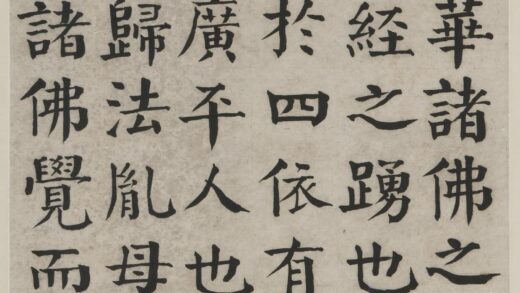 華諸佛之
経之踴也
扵四依有
廣平人也
歸法胤母
諸佛覺而